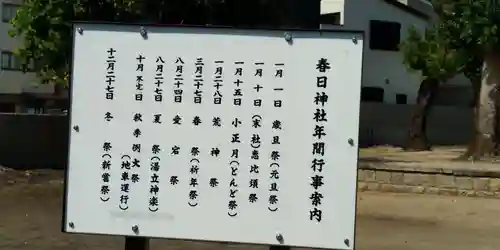 春日神社年間行事案内
一月一日 歳旦祭(元旦祭)
一月十日 (末社)恵比須祭
一月十五日 小正月(とんど祭)
一月二十八日 荒神祭
三月二十七日 春祭(祈年祭)
八月二十四日 愛宕祭
八月二十七日 夏祭(湯立神楽)
十月不定日 秋季例大祭(地車運行)
十二月二十七日 冬祭(新嘗祭)